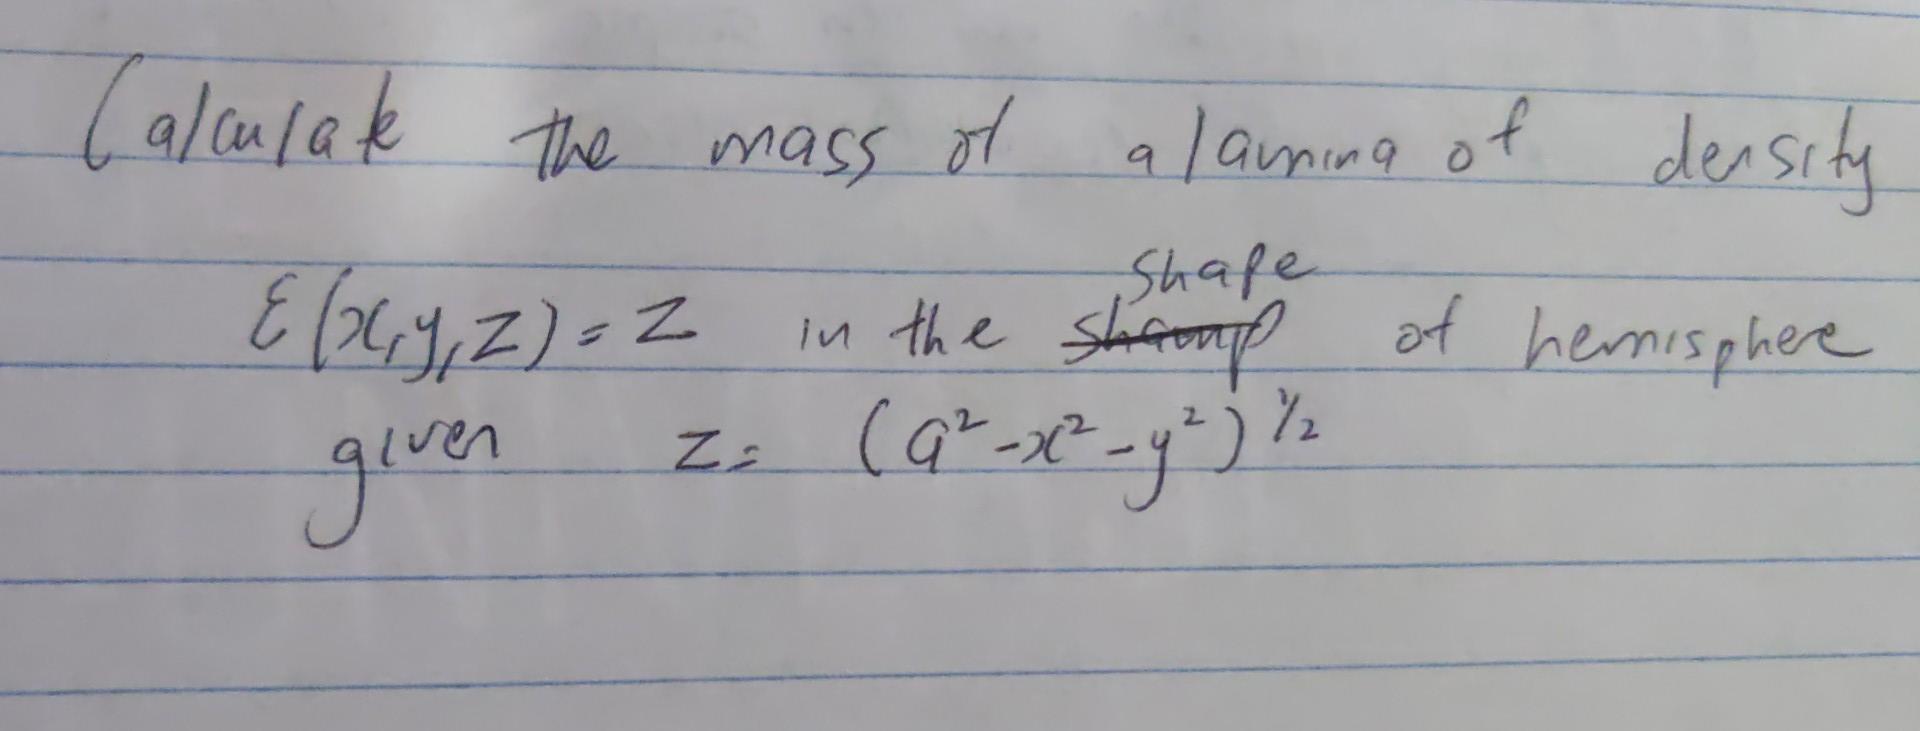 Calculate the mass of a lamina of density
ε(x,y,z) = z in the shape of hemisphere
given z = (a²-x²-y²)^1/2